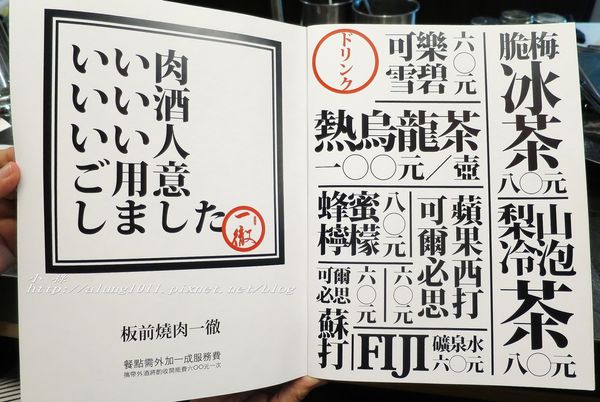 いい肉
いい酒
いい人
ご用意
しました
一徹
板前燒肉一徹
餐點需外加一成服務費
攜帶外酒將酌收開瓶費六〇〇元一次
http://alung1011.pixnet.net/blog
ドリンク
可樂
雪碧
六〇元
脆梅
冰茶
八〇元
熱烏龍茶
一〇〇元／壺
梨山
冷泡
茶
八〇元
蜂蜜
檸檬
八〇元
蘋果西打
可爾必思
六〇元
可爾
必思
蘇打
六〇元
FIJI
礦泉水
六〇元